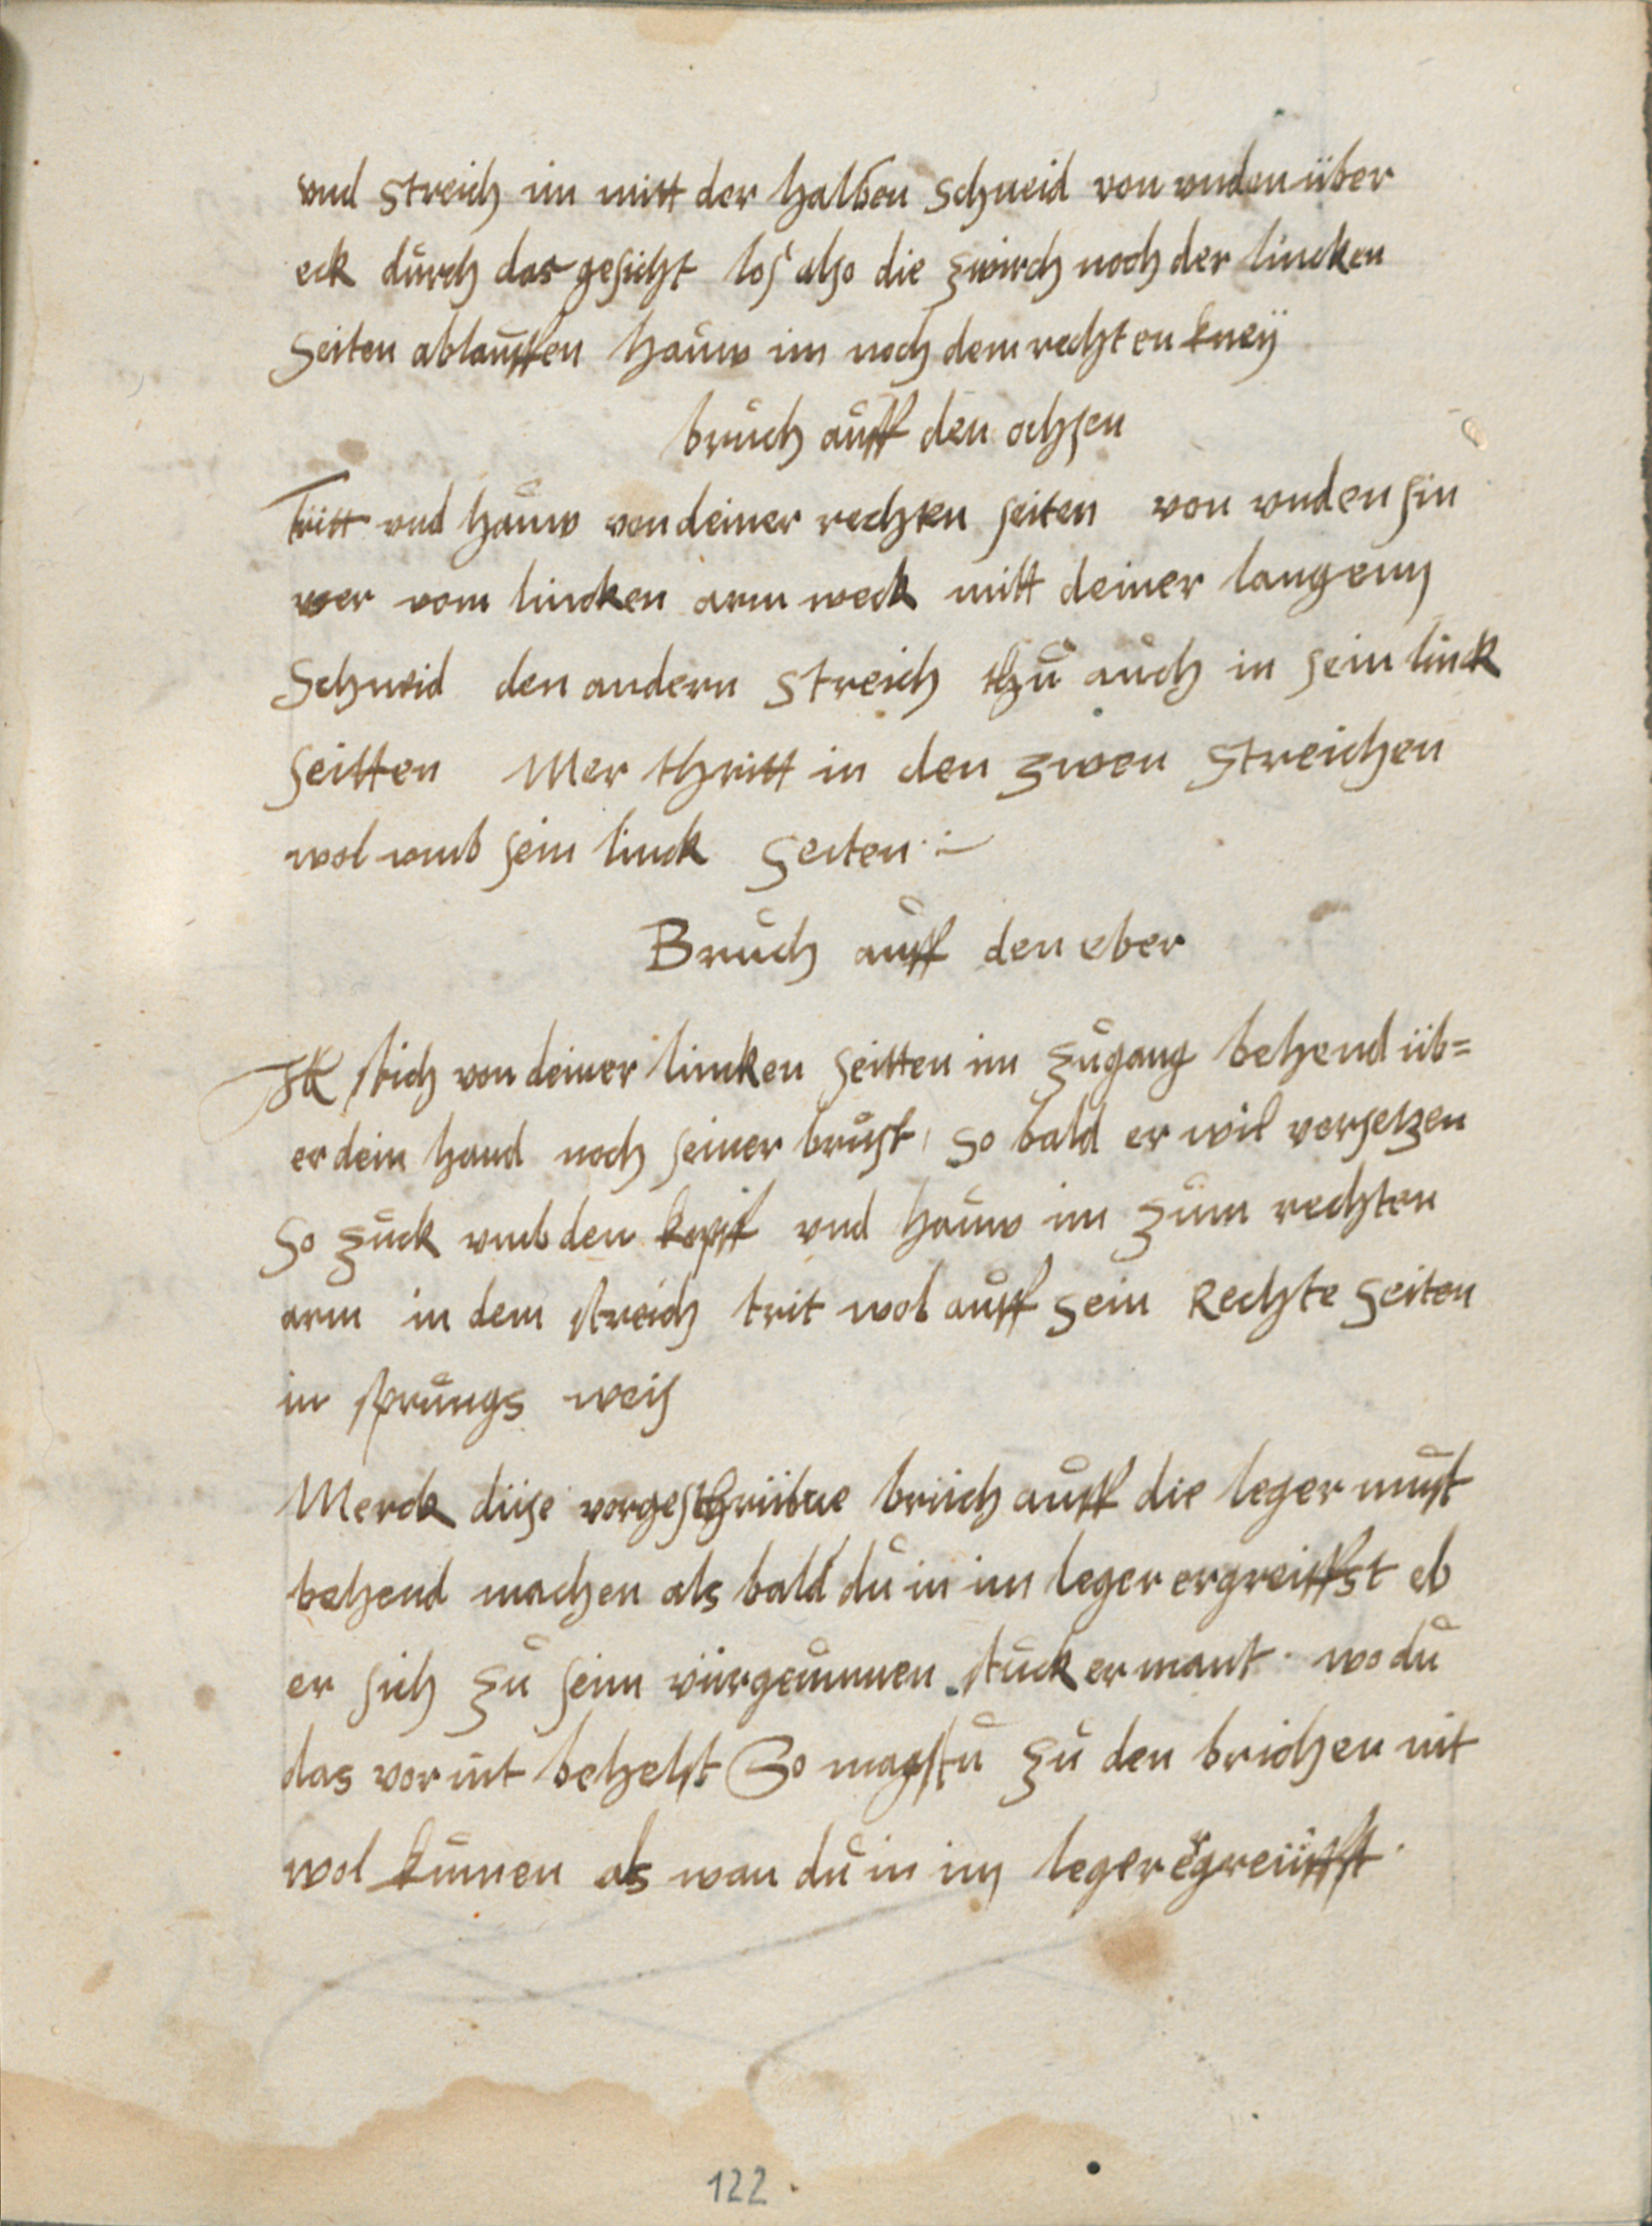 vnd streich im mitt der halben schneid von vnden über
eck durch das gesicht los also die zwirch noch der lincken
seiten ablauffen hauw im noch dem rechten kney
bruch auff den ochsen
Tritt vnd hauw von deiner rechten seiten von vnden sin
wer vom lincken arm weck mitt deiner langenn
Schneid den andern streich thu auch in sein linck
seitten Mer thritt in den zwen streichen
wol vmb sein linck seiten
Bruch auff den eber
stich von deiner lincken seitten im zugang behend üb=
er dein hand noch seiner brust so bald er wil versetzen
so zuck vmb den kopff vnd hauw im zum rechten
arm in dem streich trit wol auff sein Rechte seiten
in sprungs weis
Merck diise vorgeschriibne briich auff die leger must
behend machen als bald du in im leger ergreiffst eb
er sich zu seim vürgenumen stuck ermant wo du
das vor nit behelst So magstu zu den brichen nit
wol kumen als wan du in im leger ergreiiffst
122